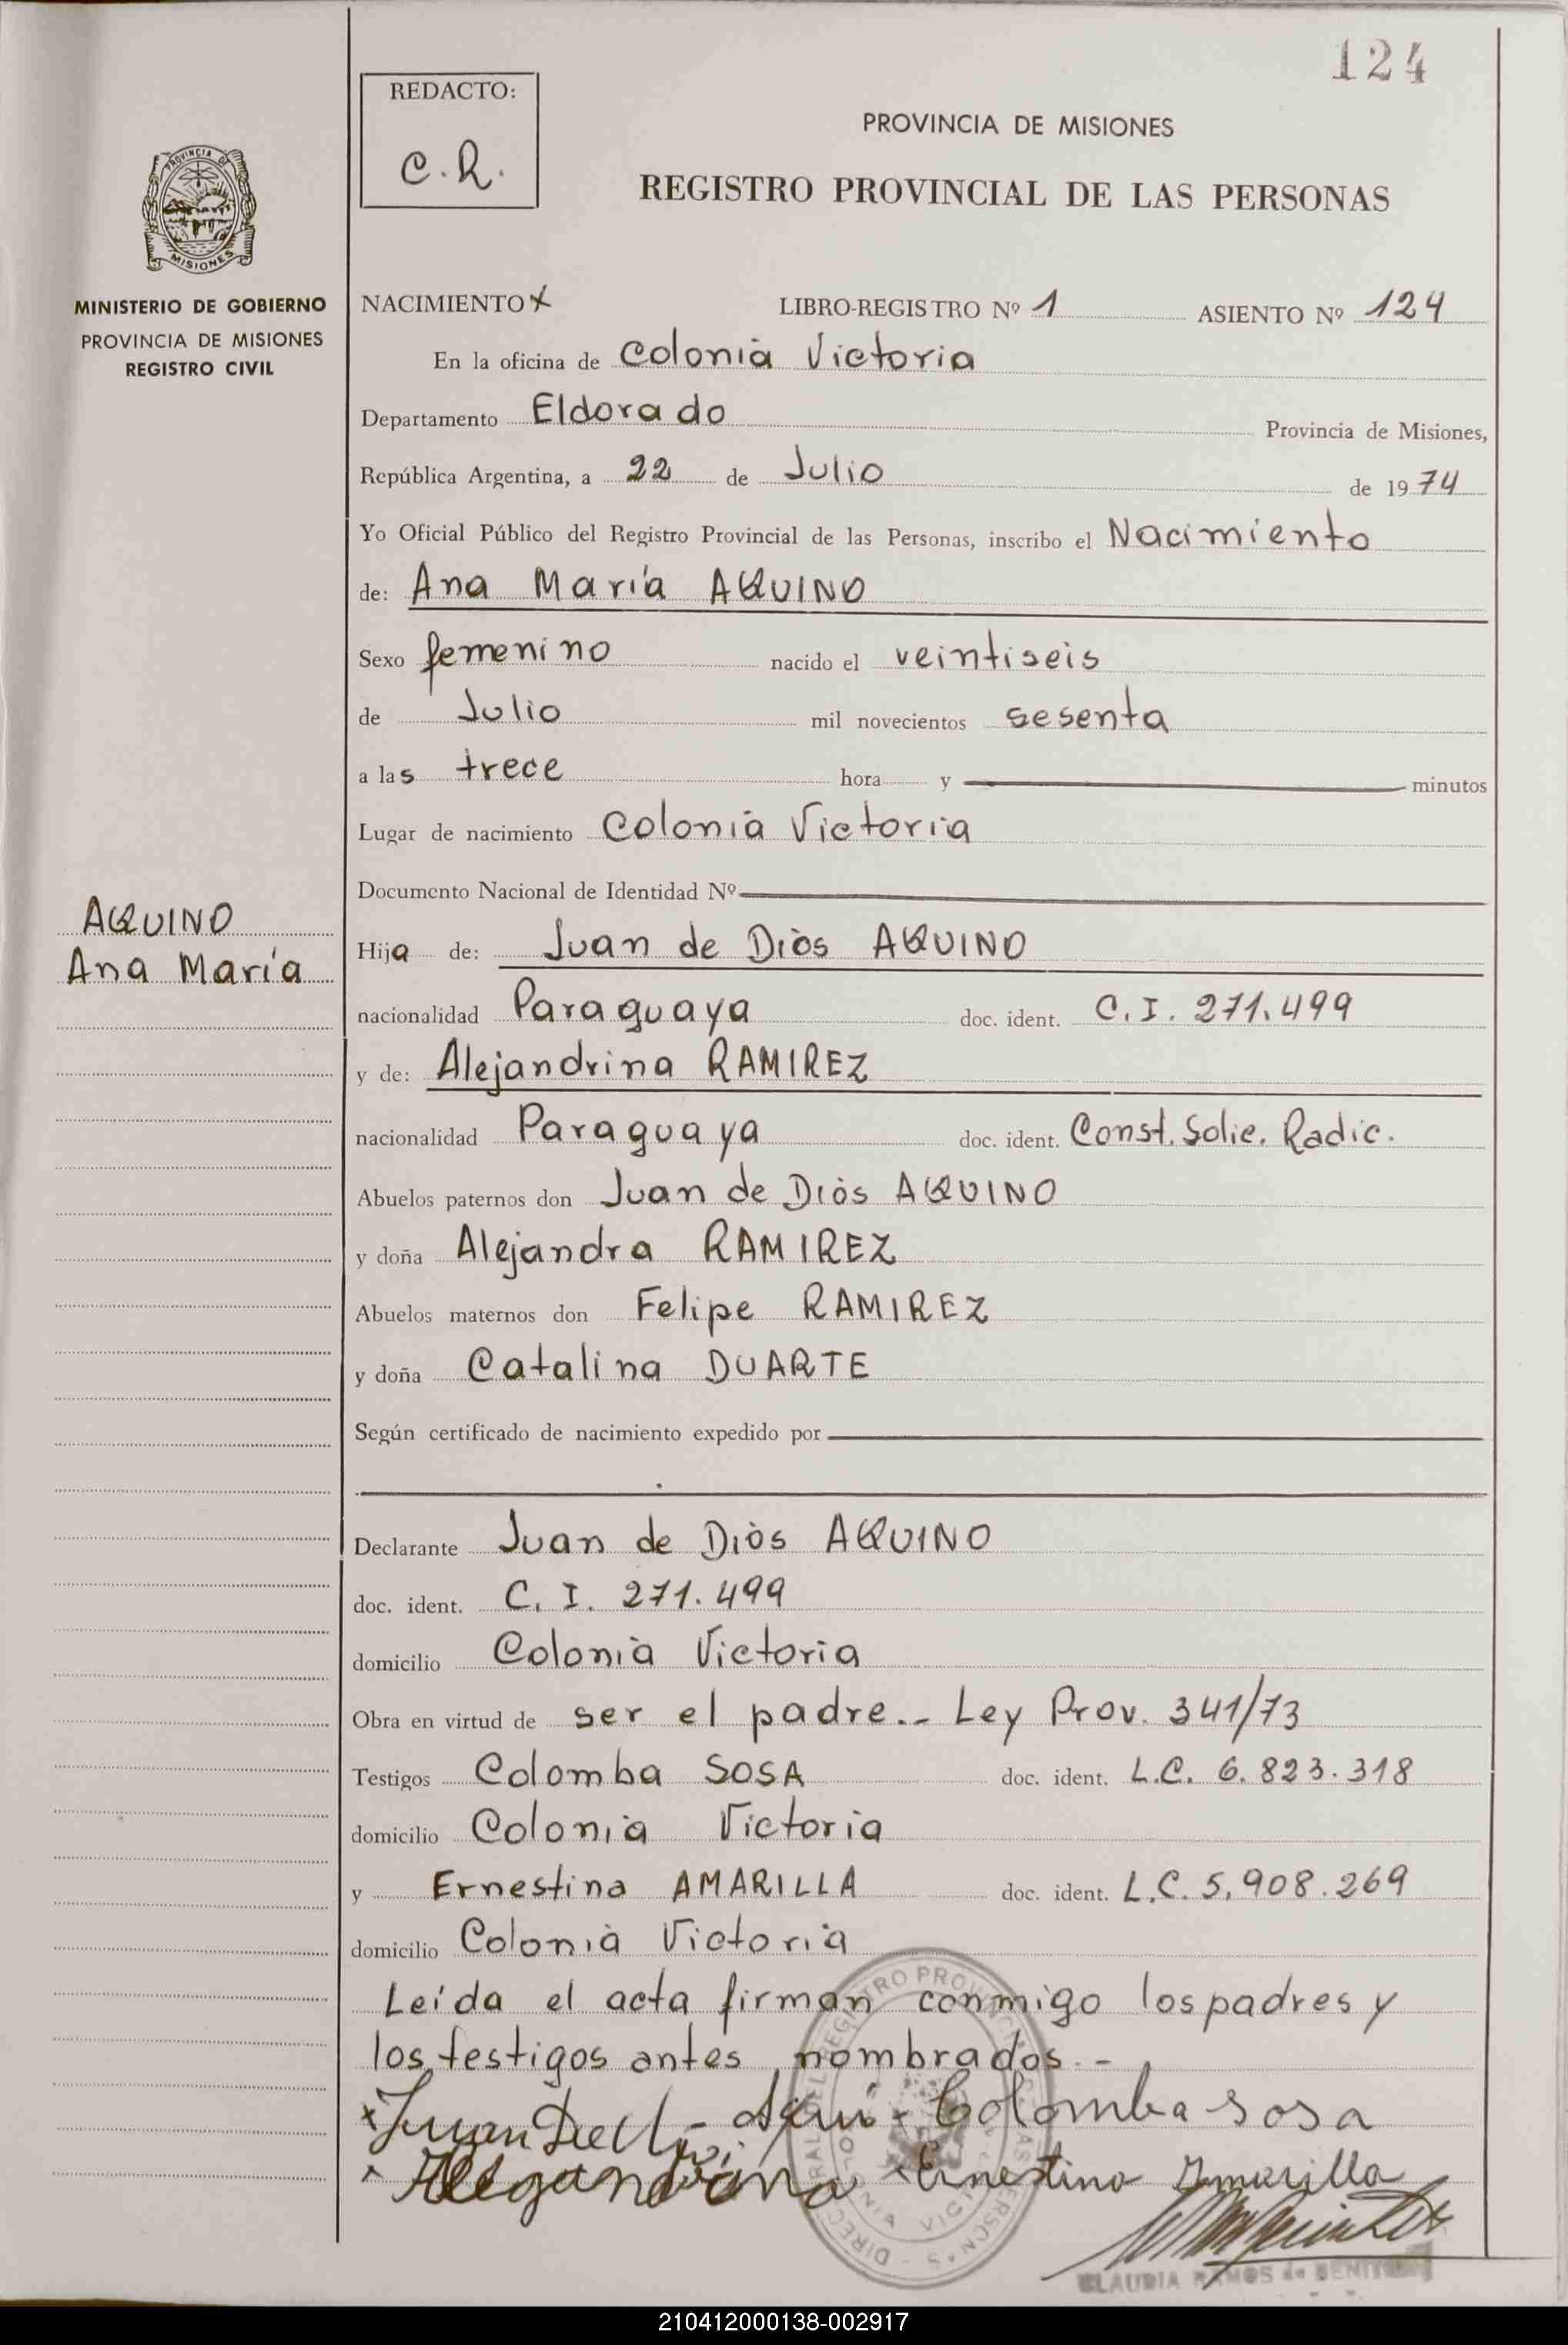 124
REDACTO:
C.R.
PROVINCIA DE MISIONES
REGISTRO PROVINCIAL DE LAS PERSONAS
PROVINCIA DE
MISIONES
MINISTERIO DE GOBIERNO
PROVINCIA DE MISIONES
REGISTRO CIVIL
NACIMIENTO X LIBRO-REGISTRO Nº 1 ASIENTO Nº 124
En la oficina de Colonia Victoria
Departamento Eldorado Provincia de Misiones,
República Argentina, a 22 de Julio de 1974
Yo Oficial Público del Registro Provincial de las Personas, inscribo el Nacimiento
de: Ana María AQUINO
Sexo femenino nacido el veintiseis
de Julio mil novecientos sesenta
a las trece hora y minutos
Lugar de nacimiento Colonia Victoria
Documento Nacional de Identidad Nº
AQUINO
Ana María
Hija de: Juan de Dios AQUINO
nacionalidad Paraguaya doc. ident. C.I. 271.499
y de: Alejandrina RAMIREZ
nacionalidad Paraguaya doc. ident. Const. Solic. Radic.
Abuelos paternos don Juan de Dios AQUINO
y doña Alejandra RAMIREZ
Abuelos maternos don Felipe RAMIREZ
y doña Catalina DUARTE
Según certificado de nacimiento expedido por
Declarante Juan de Dios AQUINO
doc. ident. C.I. 271.499
domicilio Colonia Victoria
Obra en virtud de ser el padre.- Ley Prov. 341/73
Testigos Colomba SOSA doc. ident. L.C. 6.823.318
domicilio Colonia Victoria
y Ernestina AMARILLA doc. ident. L.C. 5.908.269
domicilio Colonia Victoria
Leída el acta firman conmigo los padres y
los testigos antes nombrados.-
Colomba Sosa
Ernestina Amarilla
CLAUDIA RAMOS de BENITEZ
210412000138-002917